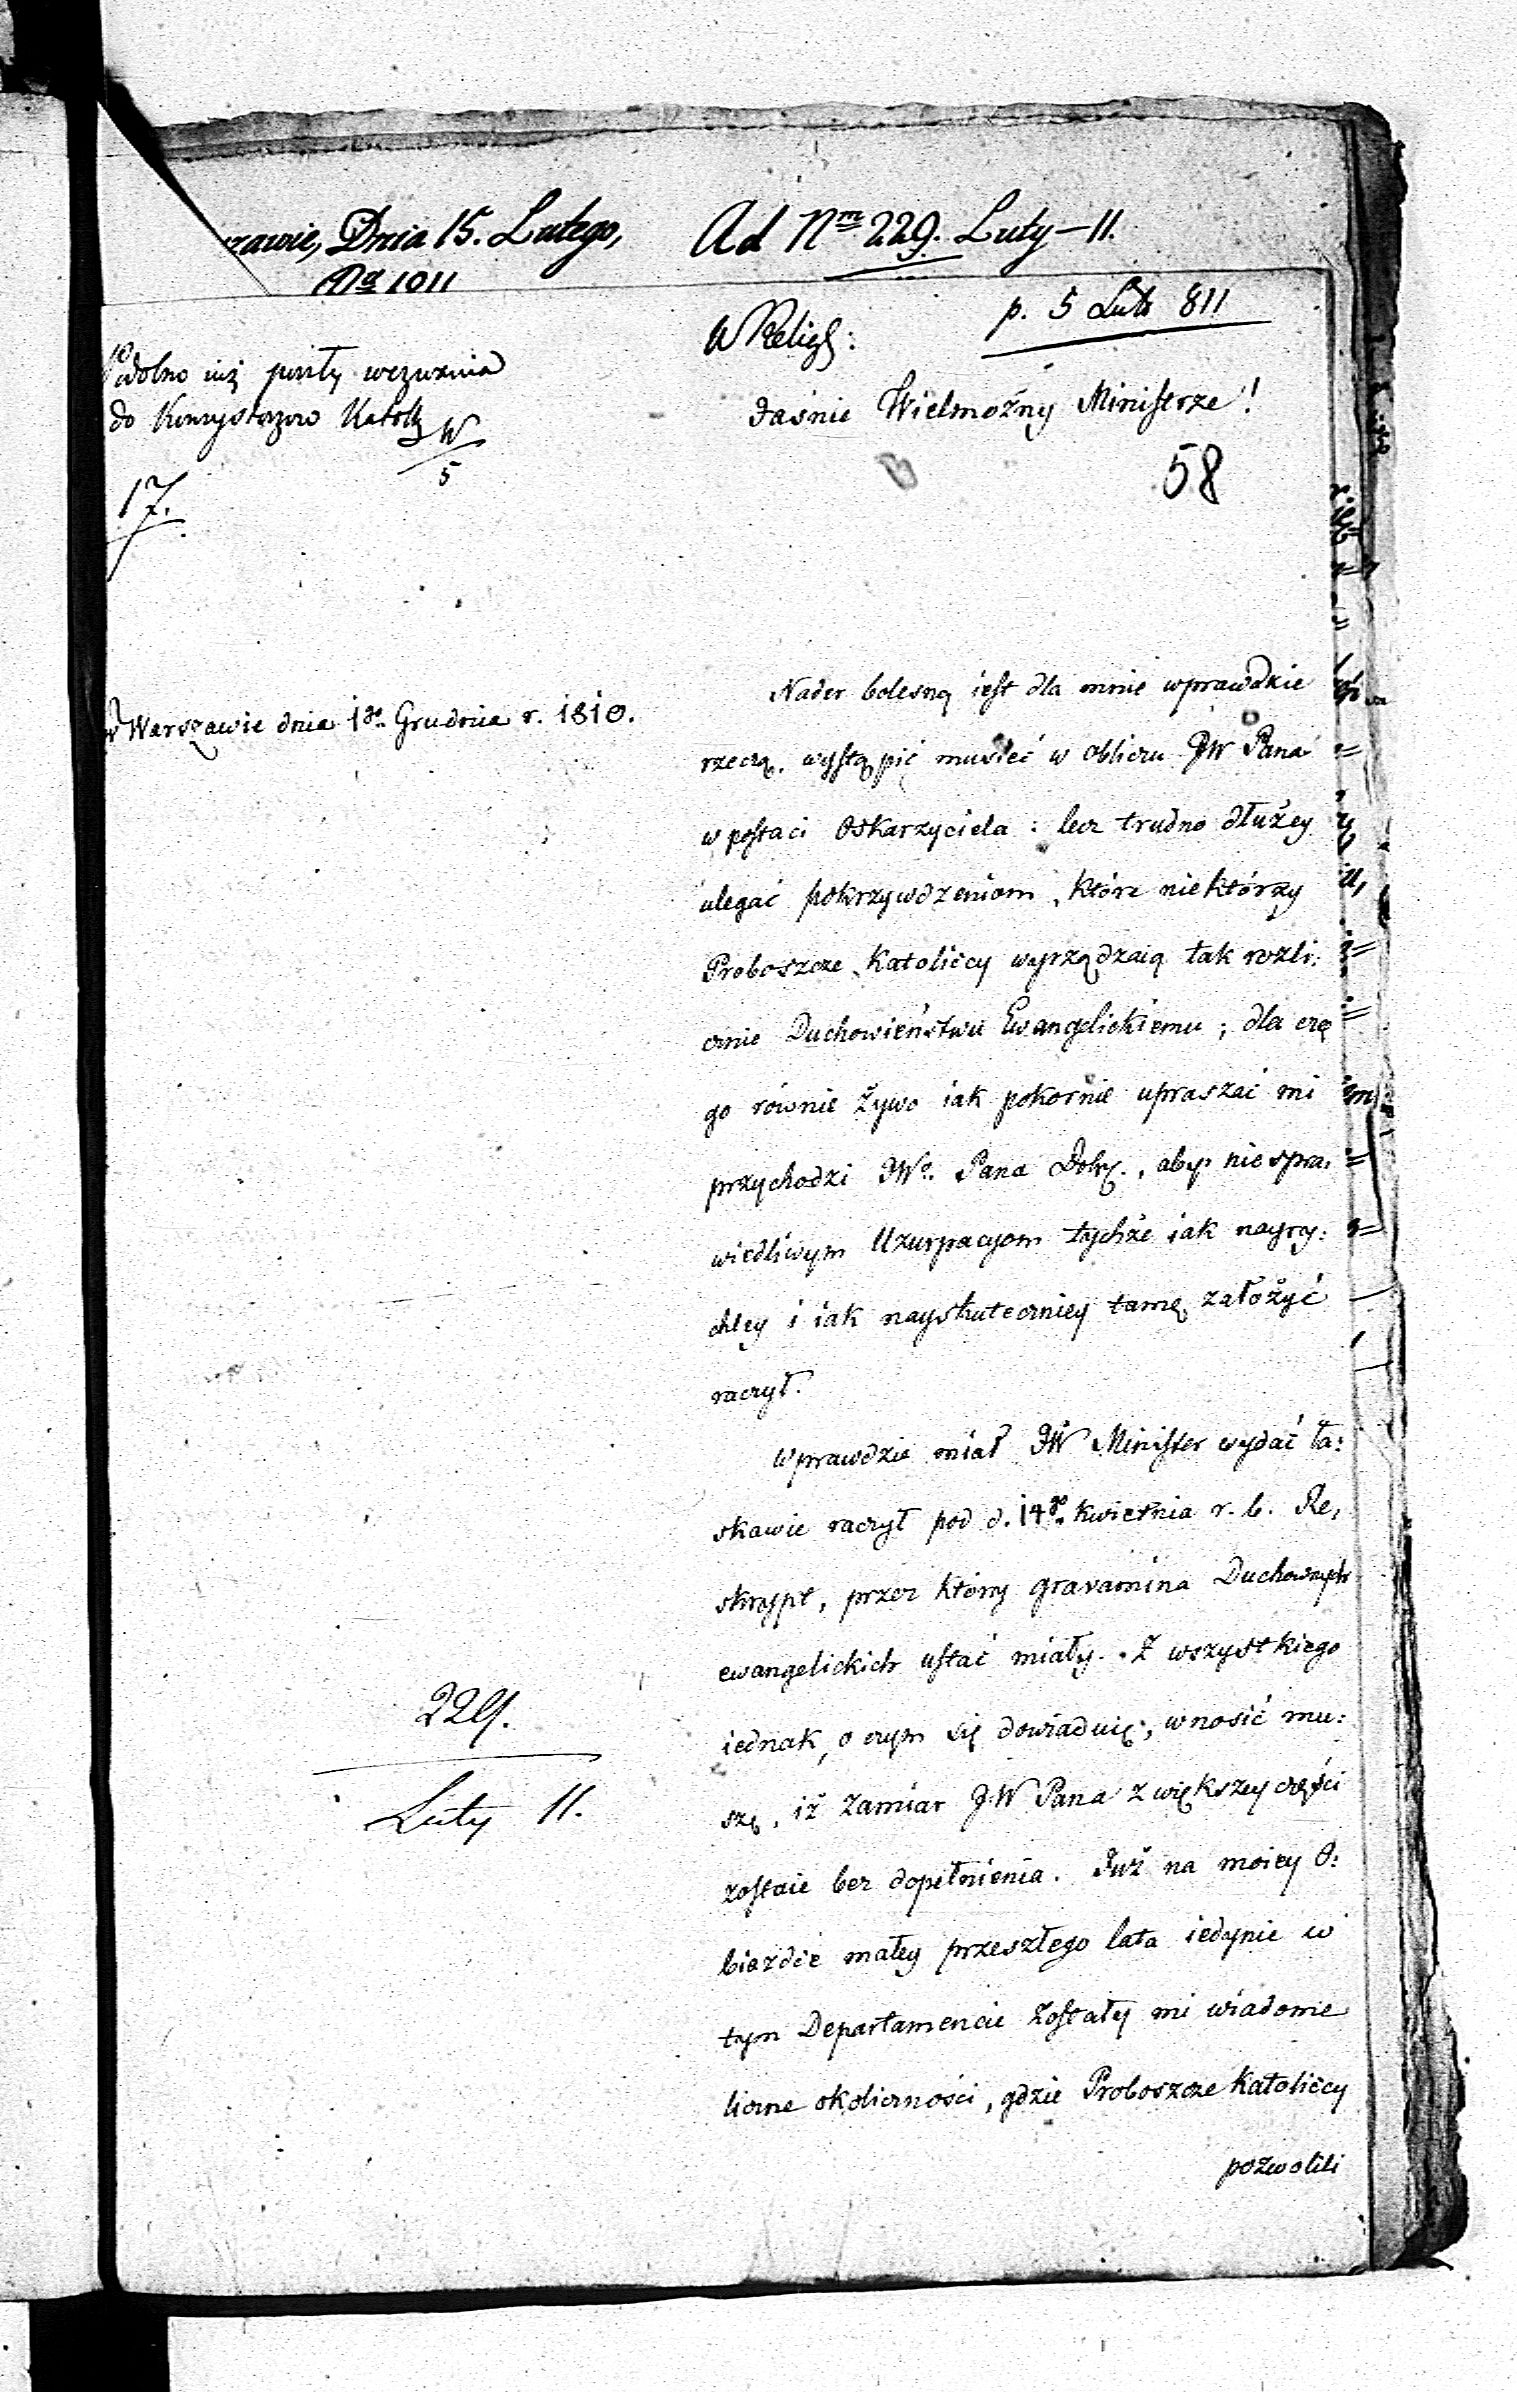 Dnia 15. Lutego,
Ad Nm 229. Luty – 11.
No 1011
W Relig:
p. 5 Lut 811
Podobno już poszły wezwania
do Konsystorzow Katolk
W
5
17.
Jaśnie Wielmożny Ministrze!
58
W Warszawie dnia 1go Grudnia r. 1810.
Nader bolesną iest dla mnie wprawdzie
rzeczą, wystąpić musieć w obliczu JW Pana
w postaci Oskarzyciela: lecz trudno dłużey
ulegać pokrzywdzeniom, które niektórzy
Proboszcze Katoliccy wyrządzaią tak rozli:
cznie Duchowieństwu Ewangelickiemu; dla cze
go równie żywo iak pokornie upraszać mi
przychodzi JWo Pana Dobr., aby niespra,
wiedliwym Uzurpacyom tychże iak nayry:
chley i iak nayskuteczniey tamę założyć
raczył.
Wprawdzie miał JW Minister wydać ła:
skawie raczył pod d. 14go Kwietnia r. b. Re,
skrypt, przez który gravamina Duchownych
ewangelickich ustać miały. Z wszystkiego
iednak, o czym się dowiaduię, wnosić mu:
szę, iż zamiar JW Pana z większey części
zostaie bez dopełnienia. Już na moiey O:
bieździe małey przeszłego lata iedynie w
tym Departamencie zostały mi wiadome
liczne okoliczności, gdzie Proboszcze Katoliccy
pozwolili
229.
Luty 11.